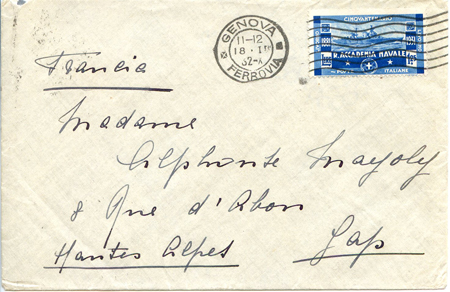 GENOVA
11-12
18 · I
32-X
FERROVIA
CINQUANTENARIO
R. ACCADEMIA NAVALE
POSTE ITALIANE
Francia
Madame
Alphonse Mayoly
8 Rue d'Abon
Hautes Alpes Gap